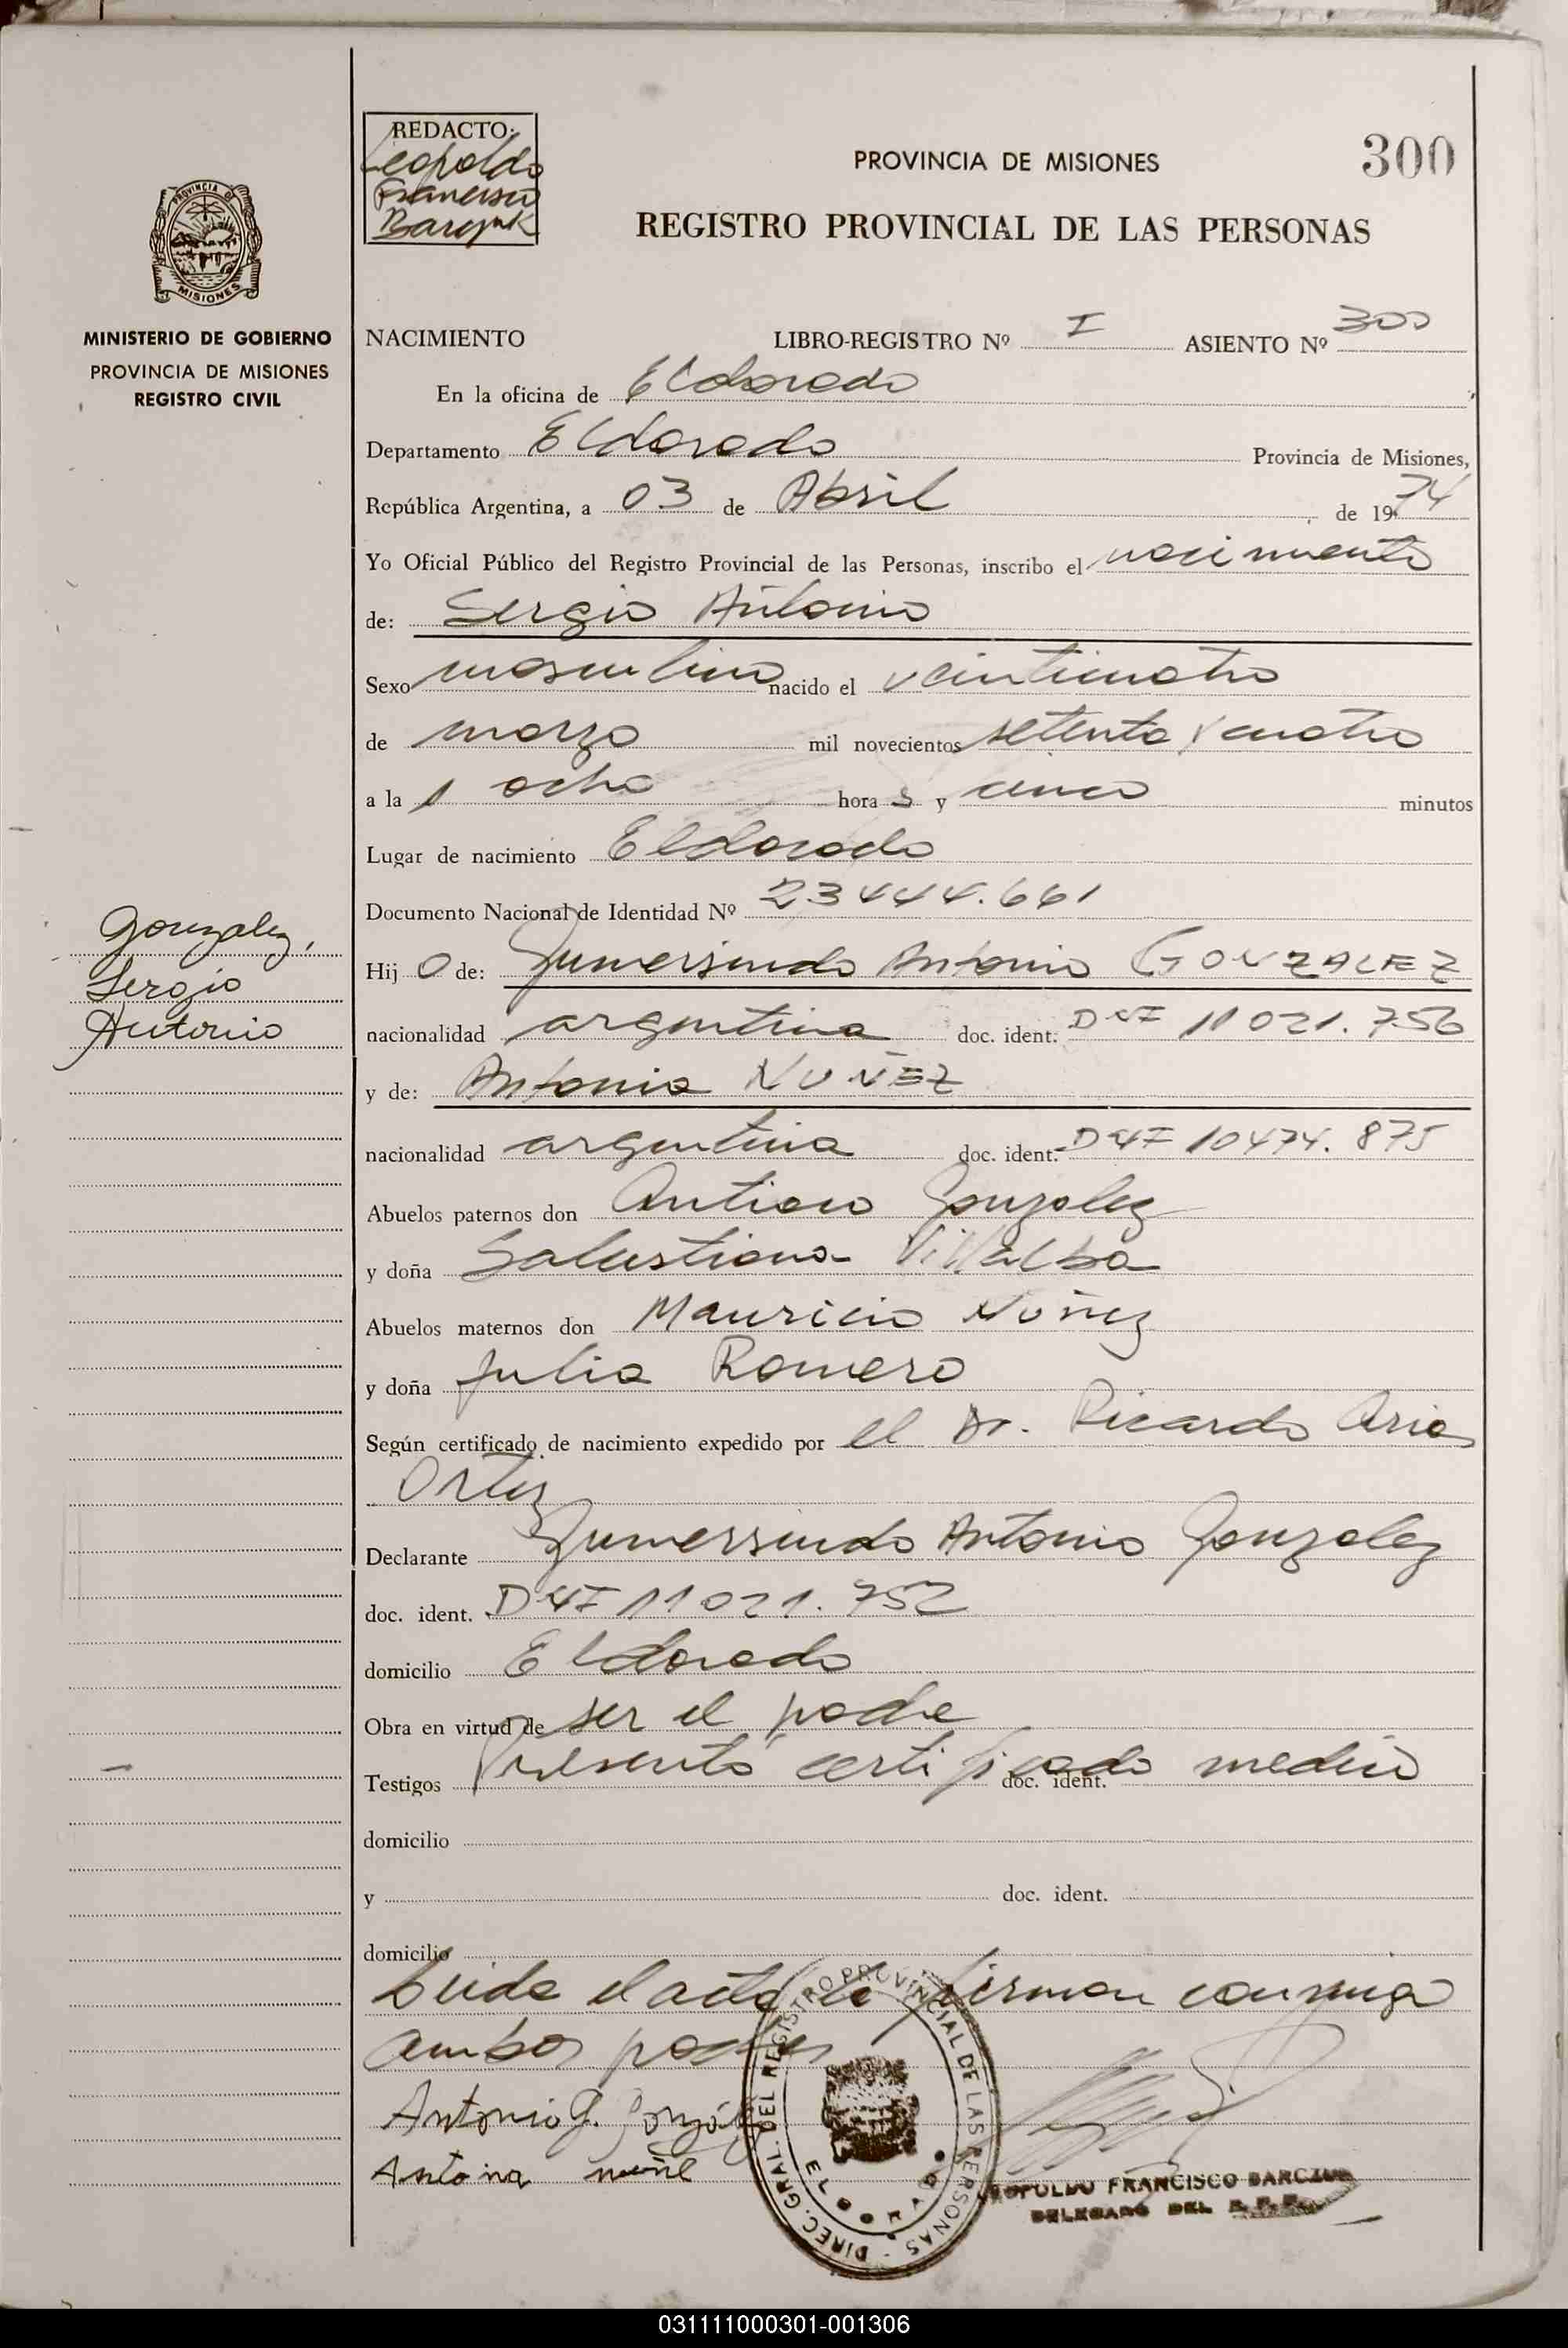 REDACTO:
Leopoldo
Francisco
PROVINCIA DE MISIONES
300
REGISTRO PROVINCIAL DE LAS PERSONAS
PROVINCIA DE
MISIONES
MINISTERIO DE GOBIERNO
PROVINCIA DE MISIONES
REGISTRO CIVIL
NACIMIENTO LIBRO-REGISTRO Nº I ASIENTO Nº 300
En la oficina de Eldorado
Departamento Eldorado Provincia de Misiones,
República Argentina, a 03 de Abril de 1974
Yo Oficial Público del Registro Provincial de las Personas, inscribo el nacimiento
de: Sergio Antonio
Sexo masculino nacido el veinticuatro
de marzo mil novecientos setenta y cuatro
a las ocho horas y cinco minutos
Lugar de nacimiento Eldorado
Documento Nacional de Identidad Nº 23444.661
Gonzalez,
Sergio
Antonio
Hijo de: Gumersindo Antonio GONZALEZ
nacionalidad argentina doc. ident. DNI 11021.756
y de: Antonia NUÑEZ
nacionalidad argentina doc. ident. DNI 10474.875
Abuelos paternos don Gonzalez
y doña Salustiana Villalba
Abuelos maternos don Mauricio Nuñez
y doña Julia Romero
Según certificado de nacimiento expedido por el Dr. Ricardo Arias
Ortiz
Declarante Gumersindo Antonio Gonzalez
doc. ident. DNI 11021.752
domicilio Eldorado
Obra en virtud de ser el padre
Testigos Presento certificado medico doc. ident.
domicilio
y doc. ident.
domicilio
Leida el acta la firman conmigo
ambos padres
Antonio G. Gonzál
Antonia nuñe
DIREC. GRAL. DEL REGISTRO PROVINCIAL DE LAS PERSONAS
LEOPOLDO FRANCISCO BARCZUK
DELEGADO DEL R.P.P.
031111000301-001306